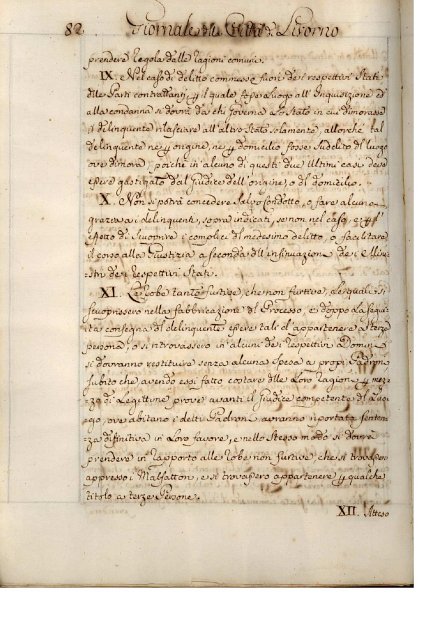 82 Giornale di Livorno
prendere regola dalle ragioni comuni.
IX. Nel caso di delitto commesso fuori de i respettivi Stati
delle Parti contrattanti, p il quale fosse luogo all'Inquisizione ed
alla condanna si dovrà da chi governa lo Stato in cui dimorasse
il delinquente rilasciare all'altro Stato solamente, allorche tal
delinquente ne p origine, ne p domicilio fosse suddito dl luogo
ove dimora poiche in alcuno di questi due ultimi casi deve
essere gastigato dal Giudice dell'origine, o dl domicilio.
X. Non si potrà concedere Salvo Condotto, o fare alcuna
grazia a i delinquenti, sopra indicati, se non nel caso, e p l'
effetto di scuoprire i complici dl medesimo delitto, o facilitare
il corso alla Giustizia a seconda dll'insinuazione de i Mini
stri de i respettivi Stati.
XI. Le robe tanto furtive, che non furtive, le quali si
scuoprissero nella fabbricazione dl Processo, e doppo la segui
ta consegna dl delinquente essere tali o appartenere a terza
persona, o si ritrovassero in alcuni de i respettivi Dominj
si dovranno restituire senza alcuna spesa a propri Padroni
subito che avendo essi fatto costare dlle loro ragioni p mez
zo di legittime prove avanti il Giudice competente dl luo
go, ove abitano i detti Padroni avranno riportata senten
za difinitiva in loro favore, e nello stesso modo si dovrà
prendere in rapporto alle robe non furtive che si trovassero
appresso i Malfattori, e si trovassero appartenere p qualche
titolo a terze Persone.
XII. Atteso